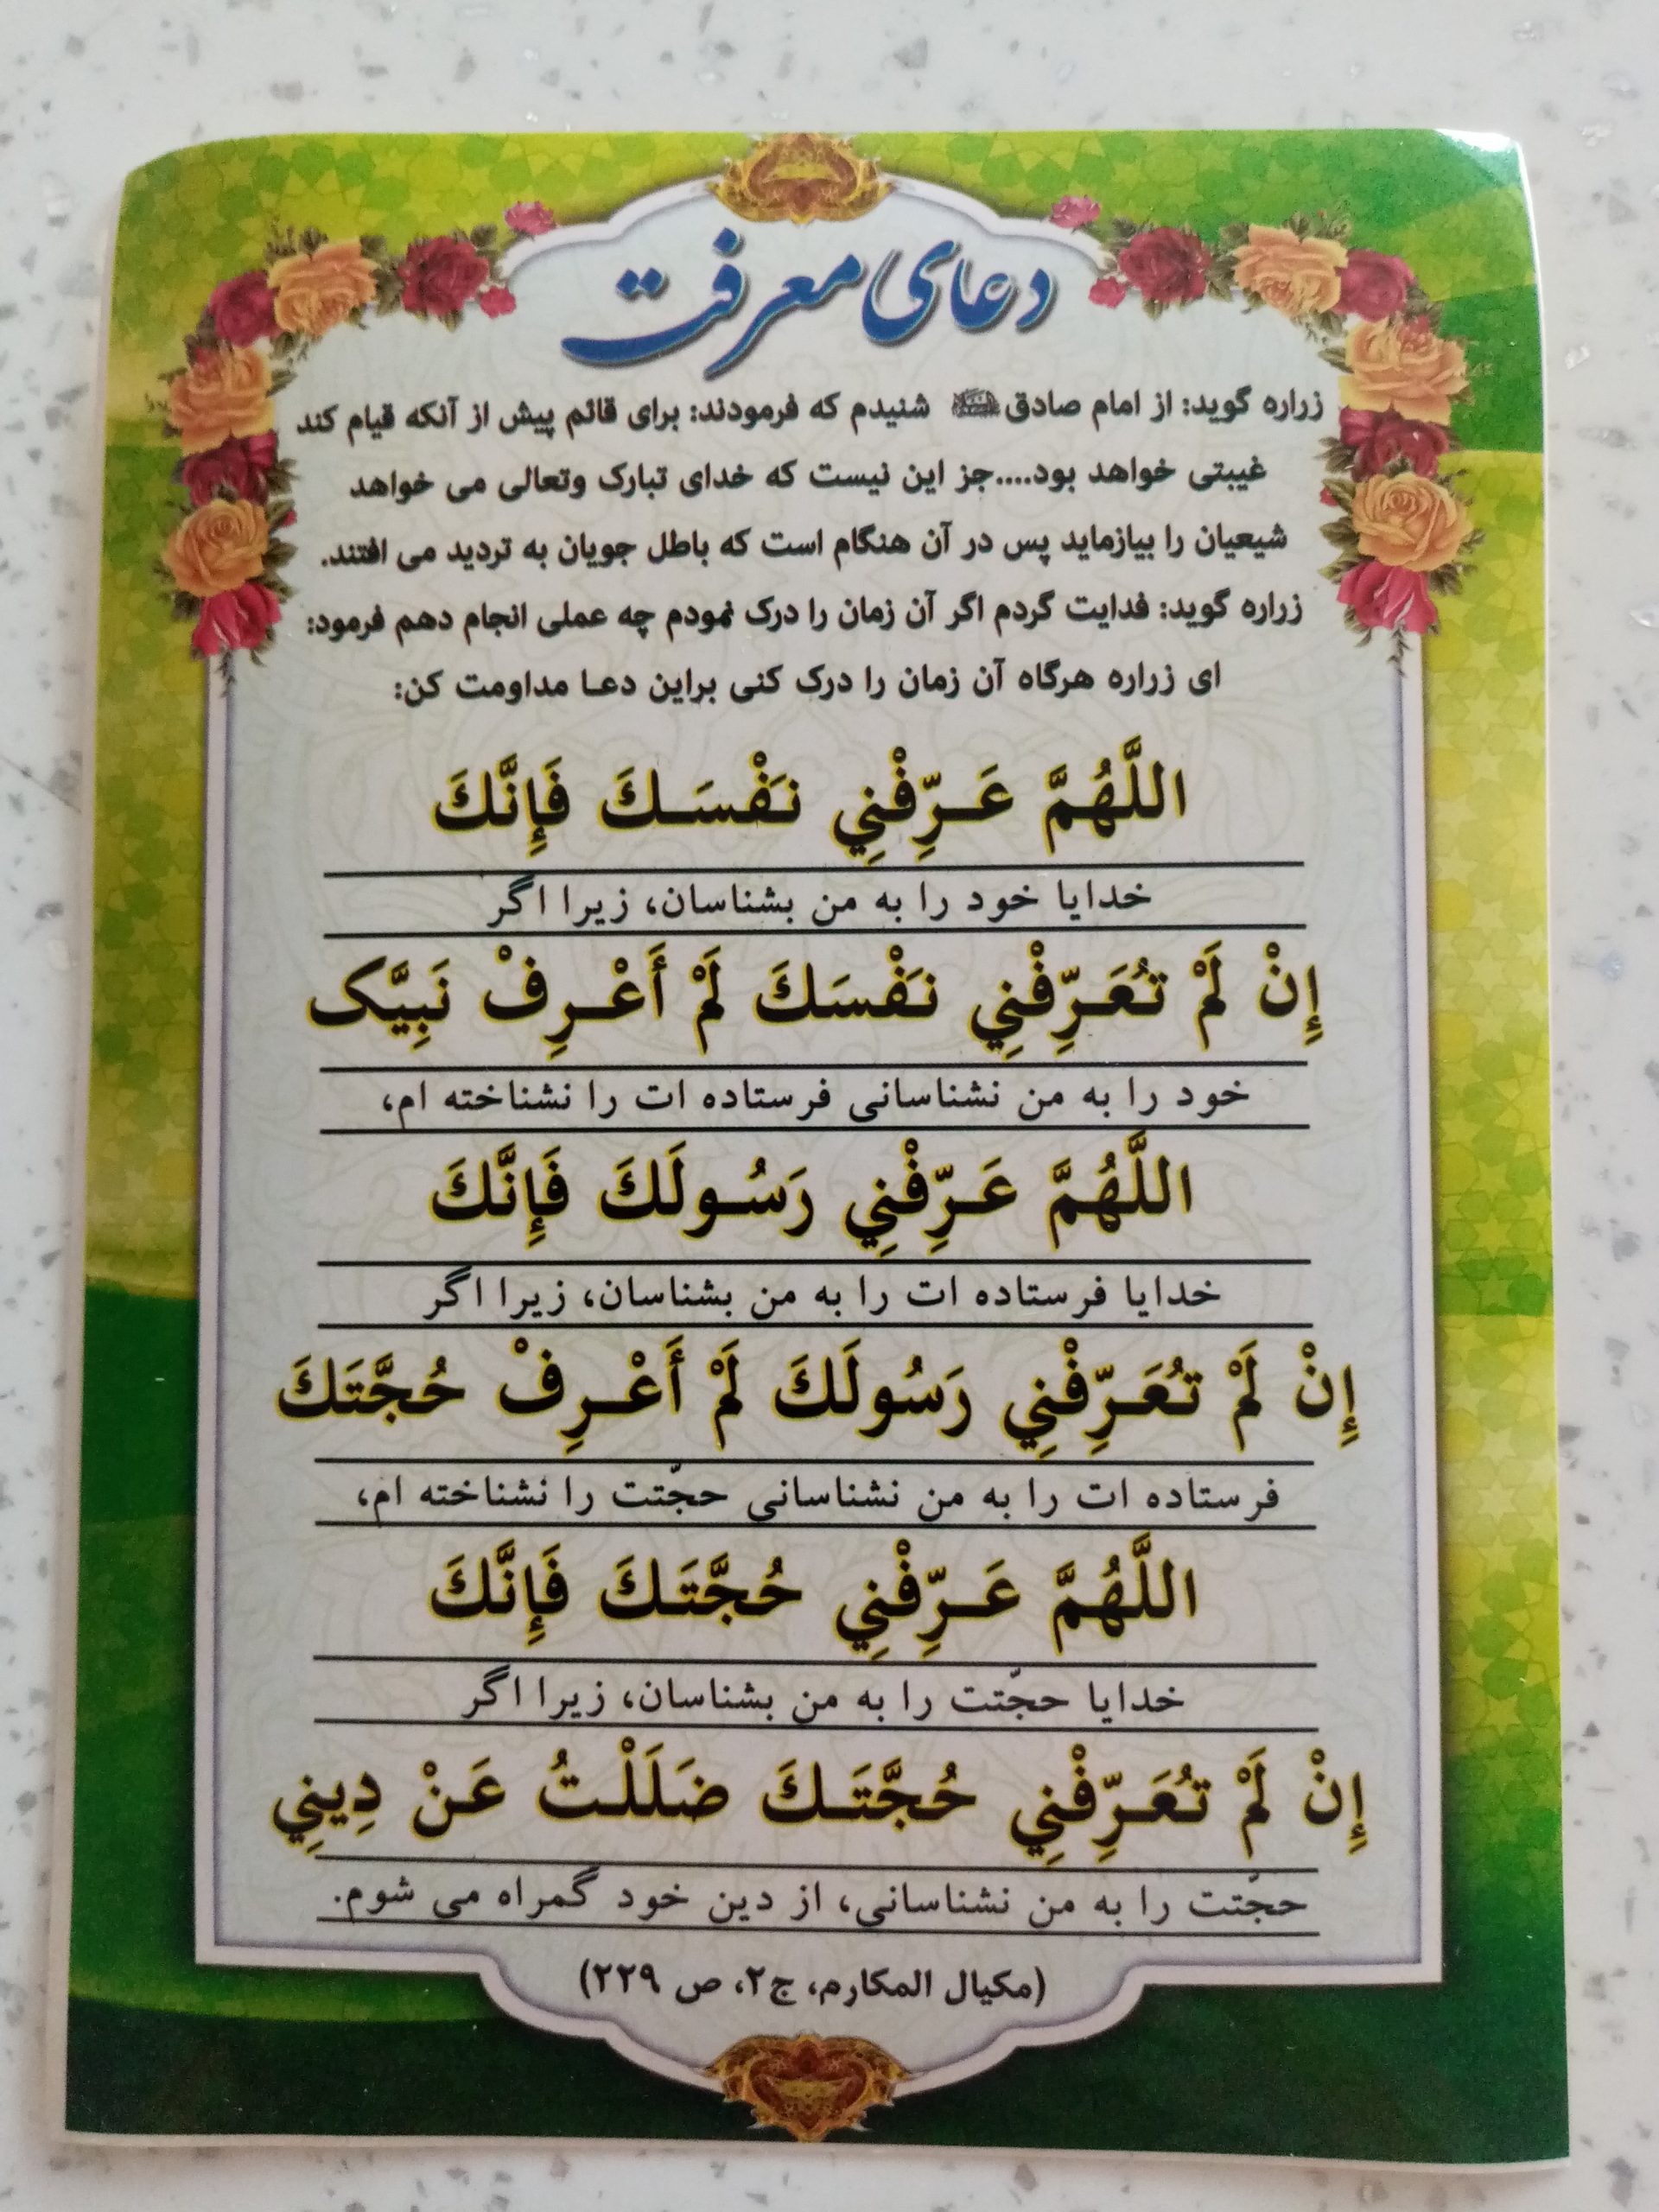 دعای معرفت
زراره گوید: از امام صادق شنیدم که فرمودند: برای قائم پیش از آنکه قیام کند
غیبتی خواهد بود....جز این نیست که خدای تبارک وتعالی می خواهد
شیعیان را بیازماید پس در آن هنگام است که باطل جویان به تردید می افتند.
زراره گوید: فدایت گردم اگر آن زمان را درک نمودم چه عملی انجام دهم فرمود:
ای زراره هرگاه آن زمان را درک کنی براین دعا مداومت کن:
اللَّهُمَّ عَرِّفْنِي نَفْسَكَ فَإِنَّكَ
خدایا خود را به من بشناسان، زیرا اگر
إِنْ لَمْ تُعَرِّفْنِي نَفْسَكَ لَمْ أَعْرِفْ نَبِيَّک
خود را به من نشناسانی فرستاده ات را نشناخته ام،
اللَّهُمَّ عَرِّفْنِي رَسُولَكَ فَإِنَّكَ
خدایا فرستاده ات را به من بشناسان، زیرا اگر
إِنْ لَمْ تُعَرِّفْنِي رَسُولَكَ لَمْ أَعْرِفْ حُجَّتَكَ
فرستاده ات را به من نشناسانی حجّتت را نشناخته ام،
اللَّهُمَّ عَرِّفْنِي حُجَّتَكَ فَإِنَّكَ
خدایا حجّتت را به من بشناسان، زیرا اگر
إِنْ لَمْ تُعَرِّفْنِي حُجَّتَكَ ضَلَلْتُ عَنْ دِينِي
حجّتت را به من نشناسانی، از دین خود گمراه می شوم.
(مکیال المکارم، ج۲، ص ۲۲۹)